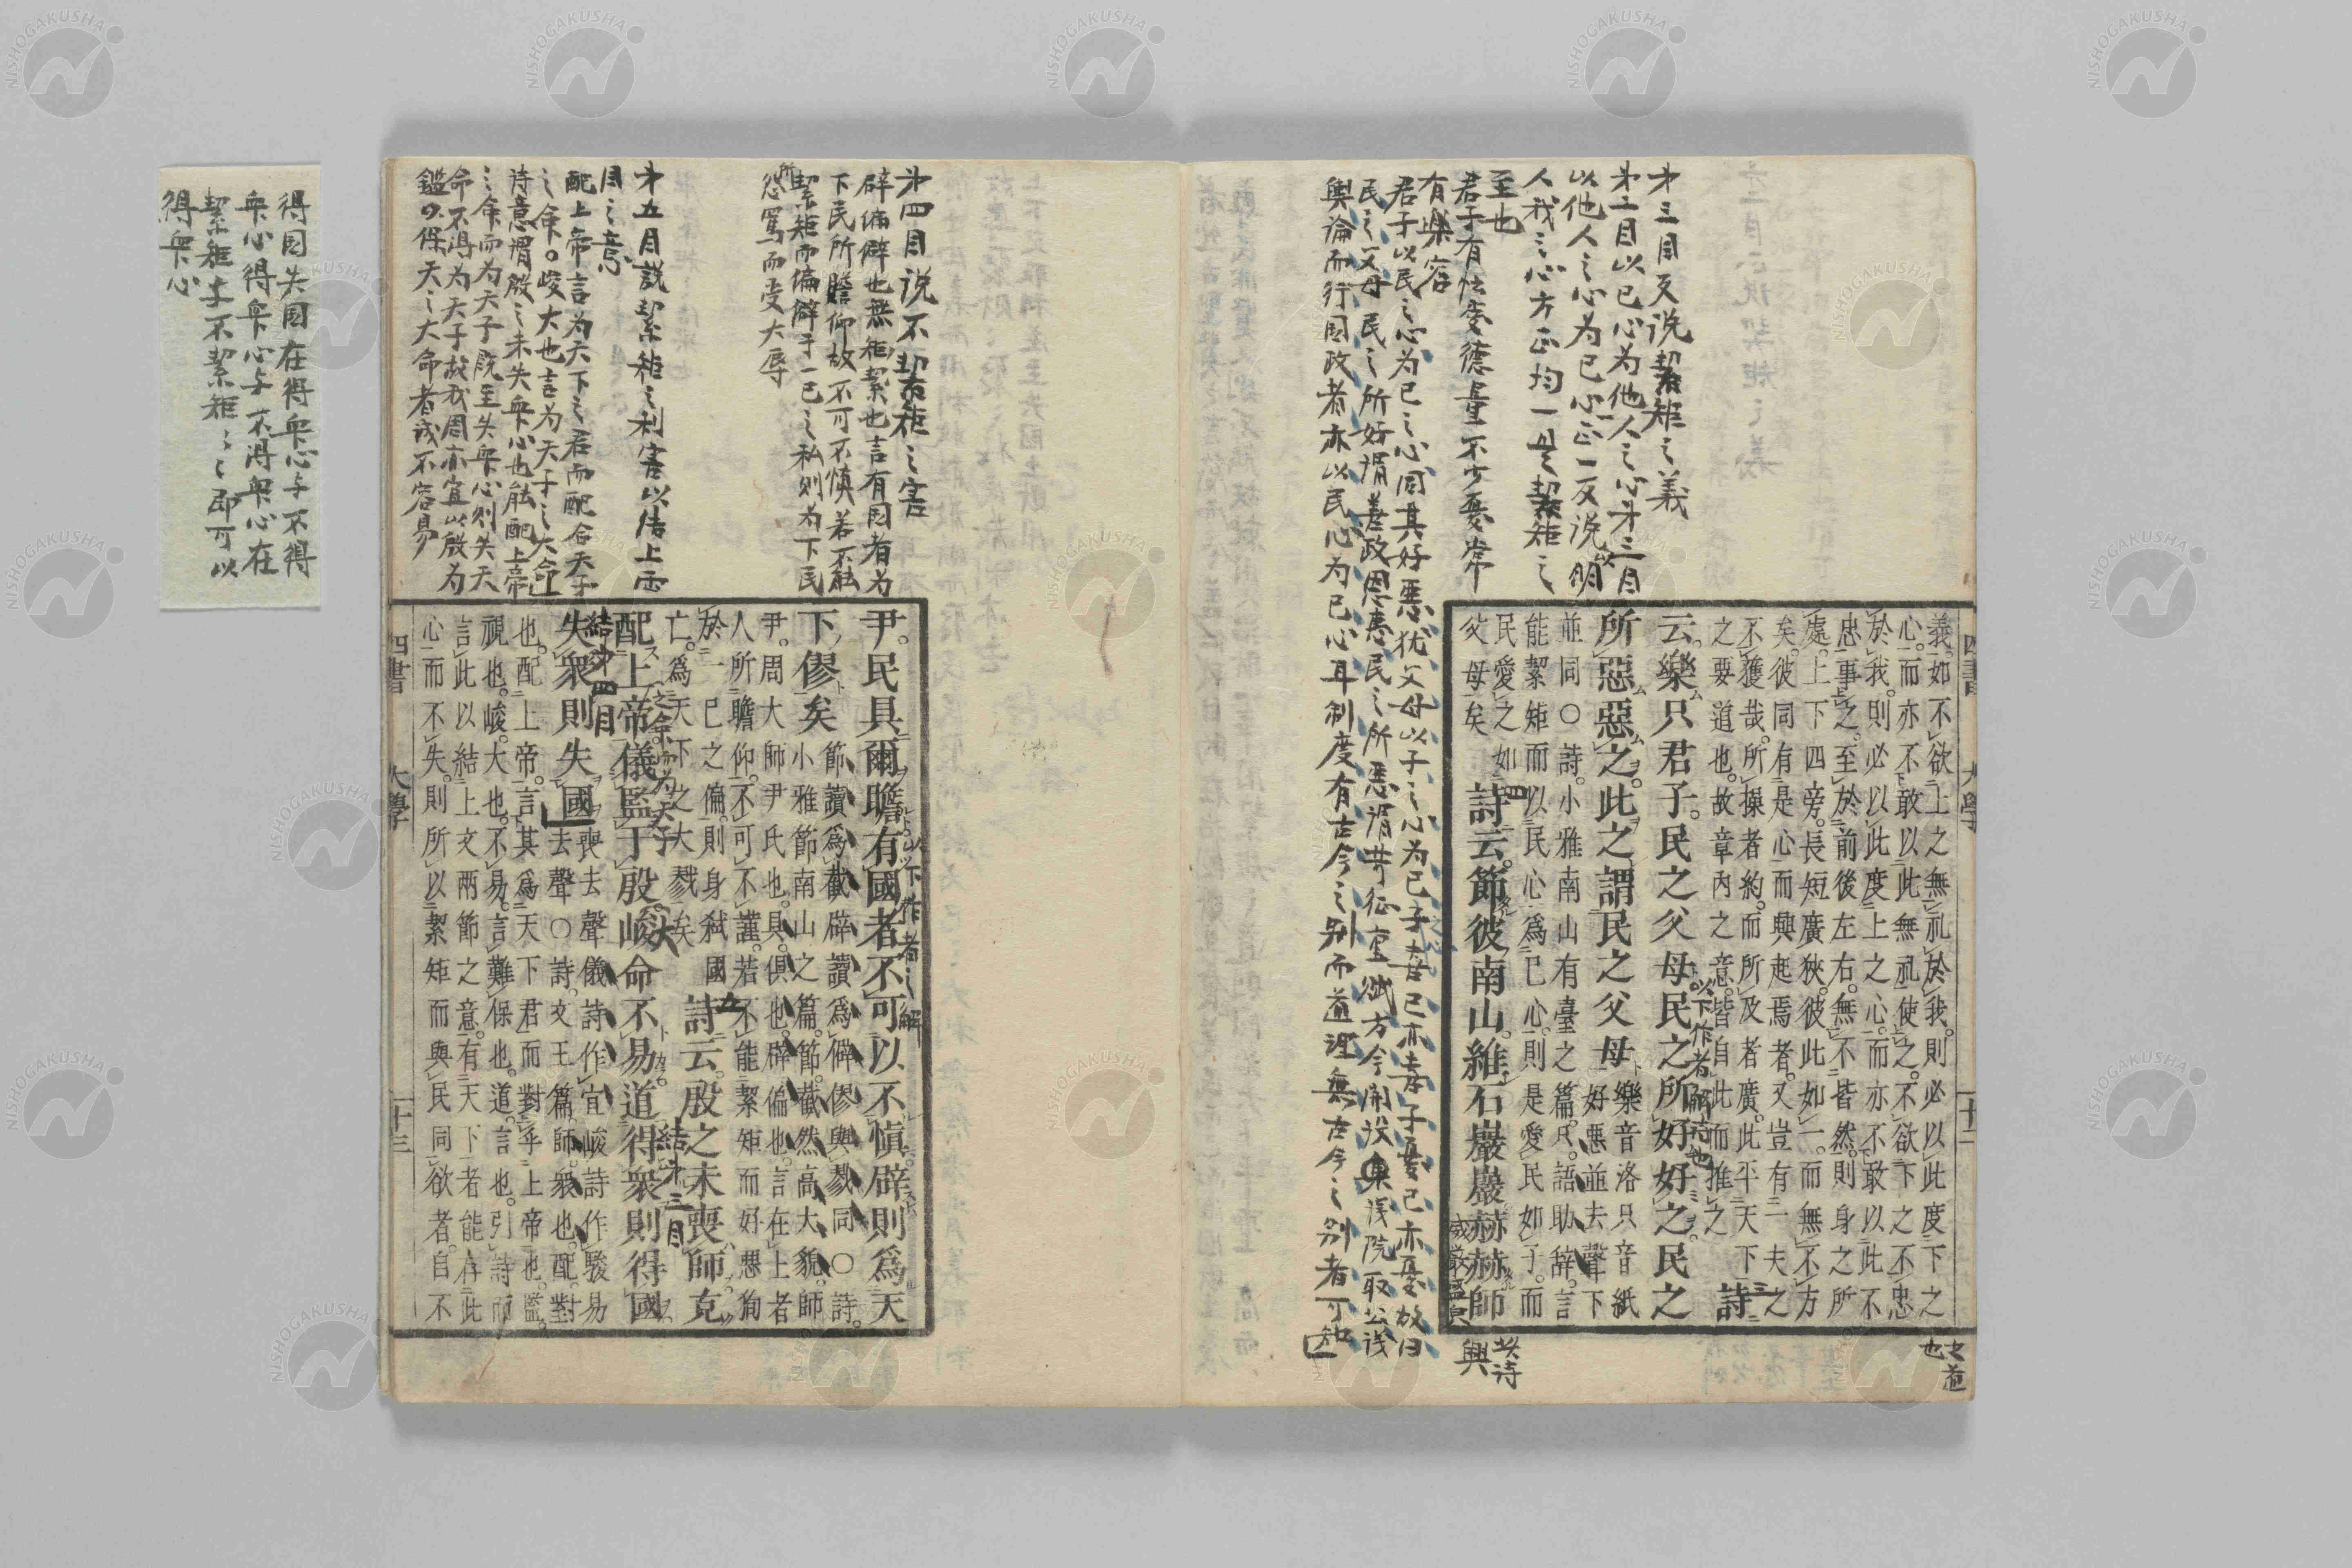 才三目反説絜矩之義
才二目以己心為他人之心才三目
以他人之心為己心正一反説以明
人我之心方正均一是絜矩之
至也
君子有
有樂容
君子以民之心為己之心同其好惡猶父母以子之心為己子
民之父母民之所好謂善政恩惠民之所惡謂苛征重賦方今開設集議院取公議
輿論而行国政者亦以民心為己心耳制度有古今之別而道理無古今之別者可知
四書 大學 十二
義。如不欲上之無礼於我。則必以此度下之
心。而亦不敢以此無礼使之。不欲下之不忠
於我。則必以此度上之心。而亦不敢以此不
忠事之。至於前後左右。無不皆然。則身之所
處。上下四旁。長短廣狹。彼此如一。而無不方
矣。彼同有是心而興起焉者。又豈有一夫之
不獲哉。所操者約。而所及者廣。此平天下
之要道也。故章內之意。皆自此而推之
詩
云。樂只君子。民之父母民之所好好之。民之
以下作者解詩也
所惡惡之。此之謂民之父母
樂音洛只音紙
好惡並去聲下
並同〇詩。小雅南山有臺之篇。只。語助辭。言
能絜矩而以民心為己心。則是愛民如子。而
民愛之如
父母矣
四
詩云。節彼南山。維石巖巖赫赫師
此詩
興
之道
也
才四目说不絜矩之害
辟偏僻也無矩絜也言有国者為
下民所瞻仰故不可不慎若不能
絜矩而偏僻于一己之私则為下民
所怨罵而受大辱
才五目説絜矩之利害以结上两
目之意
配上帝言為天下之君而配合天子
之命。峻大也言為天子之大命
诗意谓殷之未失衆心也能配上帝
之命而為天子既至失衆心则失天
命不得為天子故我周亦宜以殷為
鑑以保天之大命者誠不容易
尹。民具爾瞻有國者不可以不慎辟則為天
以下作者之解
下僇矣
節讀為截辟讀為僻僇與戮同〇詩。
小雅節南山之篇。節。截然高大貌。師
尹。周大師尹氏也。具。俱也。辟。偏也。言在上者
人所瞻仰。不可不謹。若不能絜矩而好惡徇
於一己之偏。則身弒國
亡。為天下之大戮矣
五
詩云。殷之未喪師。克
配上帝儀監于殷。峻命不易道得衆則得國
之命而為天子
大
結才三目
失衆則失國
結才四目
喪去聲儀詩作宜峻詩作駿易
去聲〇詩。文王篇。師。衆也。配。對
也。配上帝。言其為天下君。而對乎上帝也。監。
視也。峻。大也。不易。言難保也。道。言也。引詩而
言此以結上文兩節之意。有天下者能存此
心而不失。則所以絜矩而與民同欲者。自不
四書 大學 十三
得国失国在得衆心与不得
衆心得衆心与不得衆心在
絜矩与不絜矩之即可以
得衆心
NISHOGAKUSHA